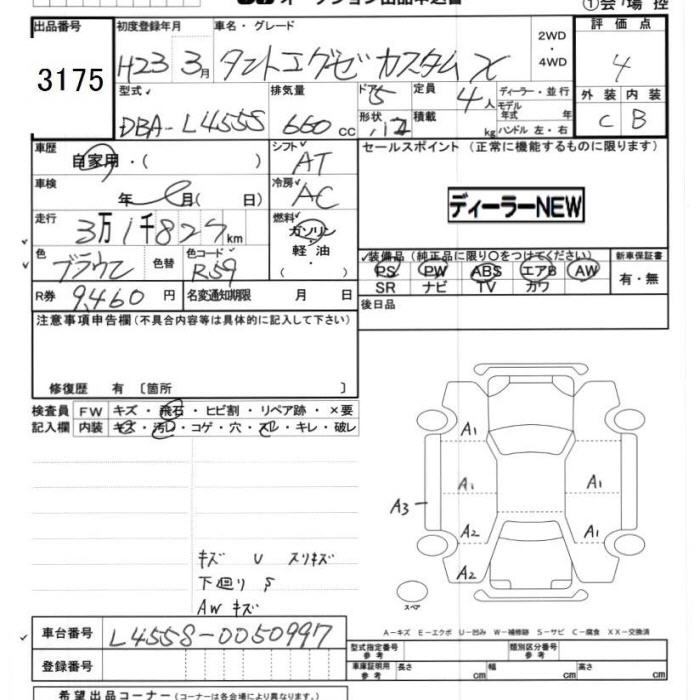 オークション出品申込書
①会場控
出品番号
3175
初度登録年月
H23 3月
車名・グレード
タントエグゼ カスタム X
2WD
・
4WD
評価点
4
外装 内装
C B
型式
DBA-L455S
排気量
660 cc
ドア 5
形状 バン
定員
4人
積載
kg
ディーラー・並行
モデル
年式 年
ハンドル 左・右
車歴
自家用・( )
シフト
AT
セールスポイント (正常に機能するものに限ります)
ディーラーNEW
車検
年 月( 日)
冷房
AC
走行
3万1千827km
燃料
ガソリン
軽油
・
( )
色
ブラウン
色替
色コード
R59
装備品(純正品に限り○をつけてください)
PS PW ABS エアB AW
SR ナビ TV カワ
新車保証書
有・無
R券 9,460 円
名変通知期限 月 日
後日品
注意事項申告欄(不具合内容等は具体的に記入して下さい)
修復歴 有 〔箇所 〕
検査員
記入欄
FW キズ・飛石・ヒビ割・リペア跡・×要
内装 キズ・汚レ・コゲ・穴・スレ・キレ・破レ
A1
A1
A1
A3
A2
A1
A2
キズ U スリキズ
下廻り S
AW キズ
スペア
A－キズ E－エクボ U－凹み W－補修跡 S－サビ C－腐食 XX－交換済
車台番号
L455S-0050997
登録番号
型式指定番号
参考
類別区分番号
参考
車庫証明用
参考
長さ cm 幅 cm 高さ cm
希望出品コーナー(コーナーは各会場により異なります。)